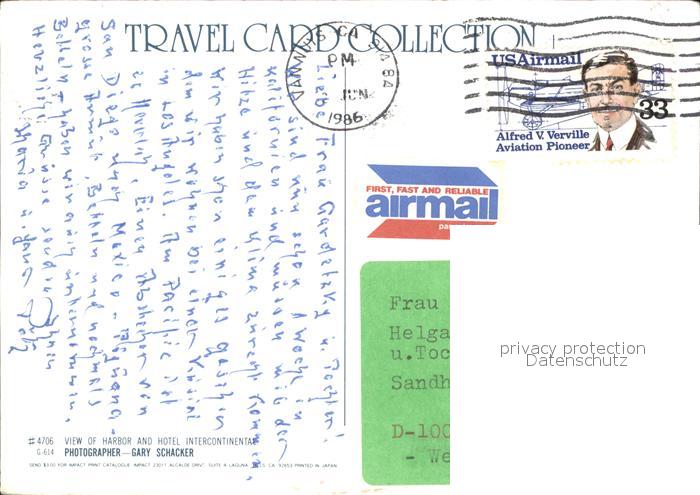 TRAVEL CARD COLLECTION
VAN NUYS CA
PM
JUN
1986
USAirmail
33
Alfred V. Verville
Aviation Pioneer
FIRST, FAST AND RELIABLE
airmail
Liebe Frau u. Tochter!
Wir sind nun schon 1 Woche in
Kalifornien und müssen mit der
Hitze und dem Klima zurecht kommen,
Wir haben schon einiges gesehen
da wir wohnen bei einer
in Los Angeles. Am Pacific ist
es herrlich, Einen Abstecher von
San Diego nach Mexico - Tijuana.
grosse Armut, Betteln und nochmals
Betteln haben wir auch unternommen.
Herzliche Grüsse sendet Ihnen
Maria u.
Frau
Helga
u.Toc
Sandh
D-100
- We
privacy protection
Datenschutz
#4706 VIEW OF HARBOR AND HOTEL INTERCONTINENTAL
G-614 PHOTOGRAPHER—GARY SCHACKER
SEND $3.00 FOR IMPACT PRINT CATALOGUE IMPACT 23011 ALCALDE DRIVE, SUITE A LAGUNA HILLS CA. 92653 PRINTED IN JAPAN